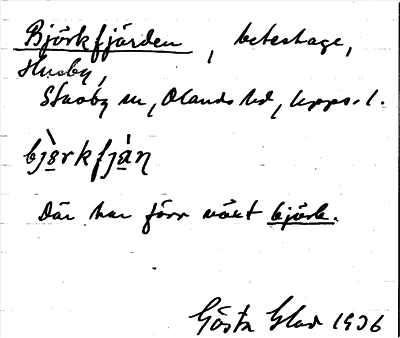 Björkfjärden, beteshage,
Husby,
Stavby sn, Olands hd, Upps. l.
bjö̀rkfjá̱ɳ
Där har förr växt björk.
Gösta Glad 1936